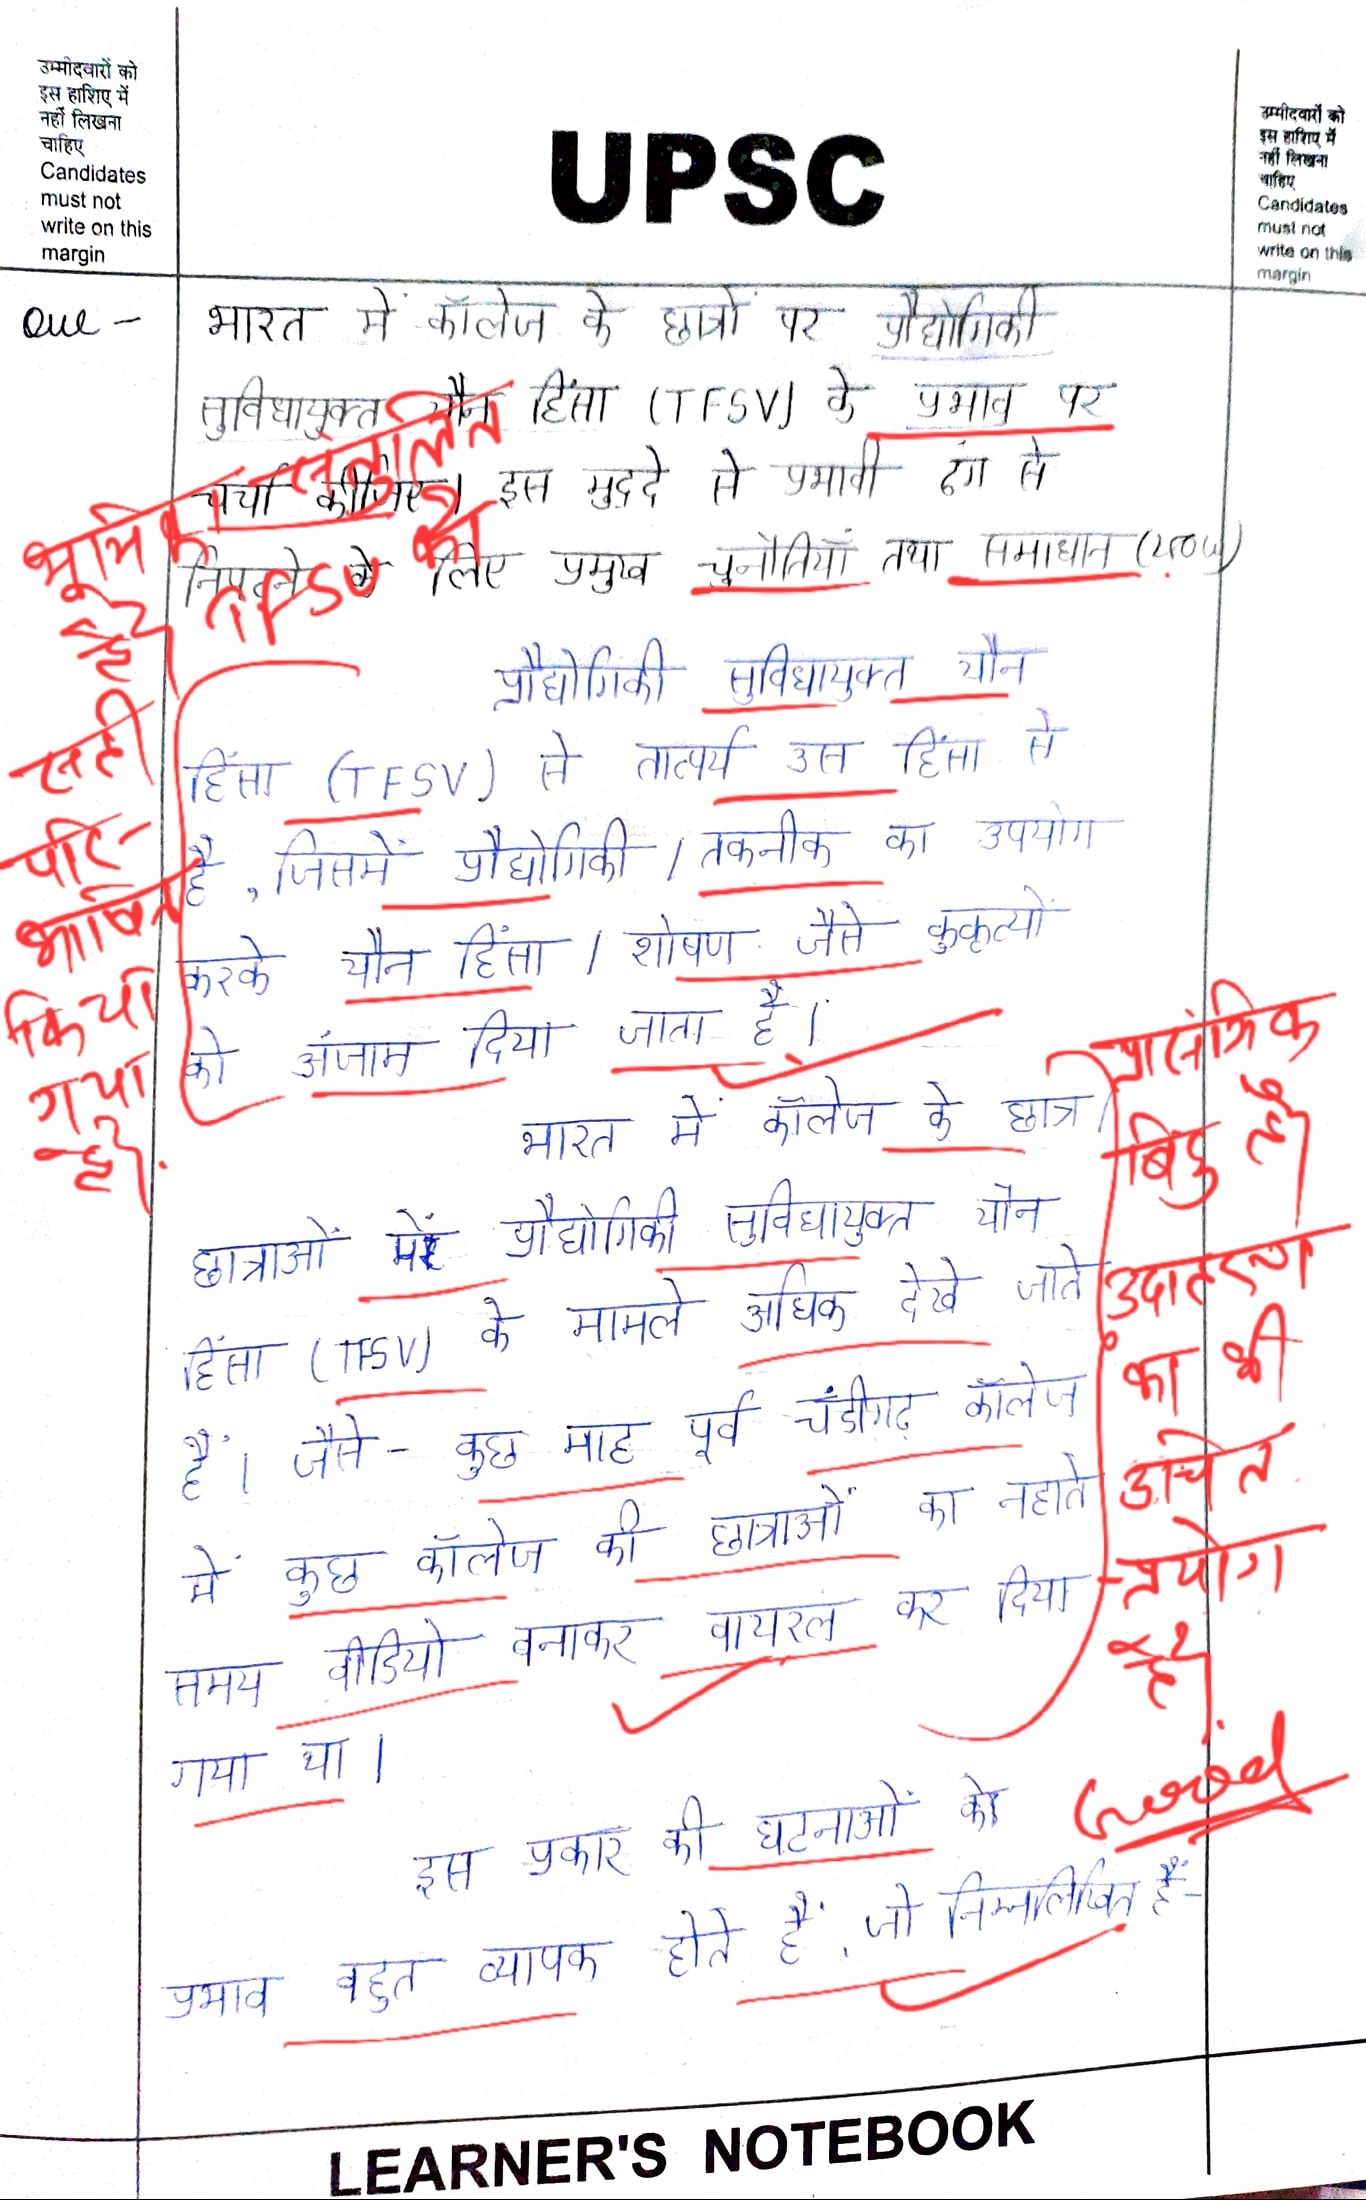 उम्मीदवारों को
इस हाशिए में
नहीं लिखना
चाहिए
Candidates
must not
write on this
margin
UPSC
उम्मीदवारों को
इस हाशिए में
नहीं लिखना
चाहिए
Candidates
must not
write on this
margin
Que - भारत में कॉलेज के छात्रों पर प्रौद्योगिकी
सुविधायुक्त यौन हिंसा (TFSV) के प्रभाव पर
चर्चा कीजिए। इस मुद्दे से प्रभावी ढंग से
निपटने के लिए प्रमुख चुनौतियाँ तथा समाधान
भूमिका संतुलित
है TFSV को
सही
परि-
भाषित
किया
गया
है।
प्रौद्योगिकी सुविधायुक्त यौन
हिंसा (TFSV) से तात्पर्य उस हिंसा से
है, जिसमें प्रौद्योगिकी / तकनीक का उपयोग
करके यौन हिंसा / शोषण जैसे कुकृत्यों
को अंजाम दिया जाता है।
भारत में कॉलेज के छात्र/
छात्राओं में प्रौद्योगिकी सुविधायुक्त यौन
हिंसा (TFSV) के मामले अधिक देखे जाते
हैं। जैसे - कुछ माह पूर्व चंडीगढ़ कॉलेज
में कुछ कॉलेज की छात्राओं का नहाते
समय वीडियो बनाकर वायरल कर दिया
गया था।
प्रासंगिक
बिंदु है
उदाहरण
का भी
उचित
प्रयोग
है
Good
इस प्रकार की घटनाओं के
प्रभाव बहुत व्यापक होते हैं, जो निम्नलिखित हैं -
LEARNER'S NOTEBOOK